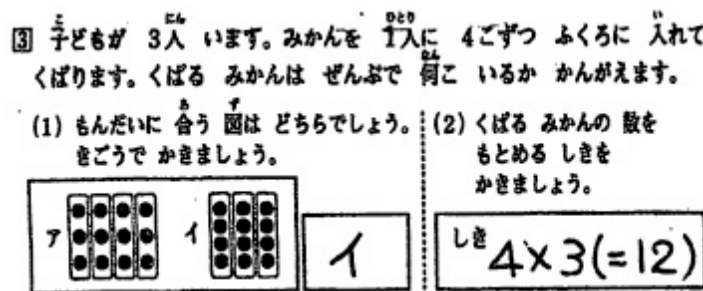 3 子どもが 3人 います。みかんを 1人に 4こずつ ふくろに 入れて
くばります。くばる みかんは ぜんぶで 何こ いるか かんがえます。
(1) もんだいに 合う 図は どちらでしょう。
きごうで かきましょう。
ア イ
イ
(2) くばる みかんの 数を
もとめる しきを
かきましょう。
しき 4×3(=12)